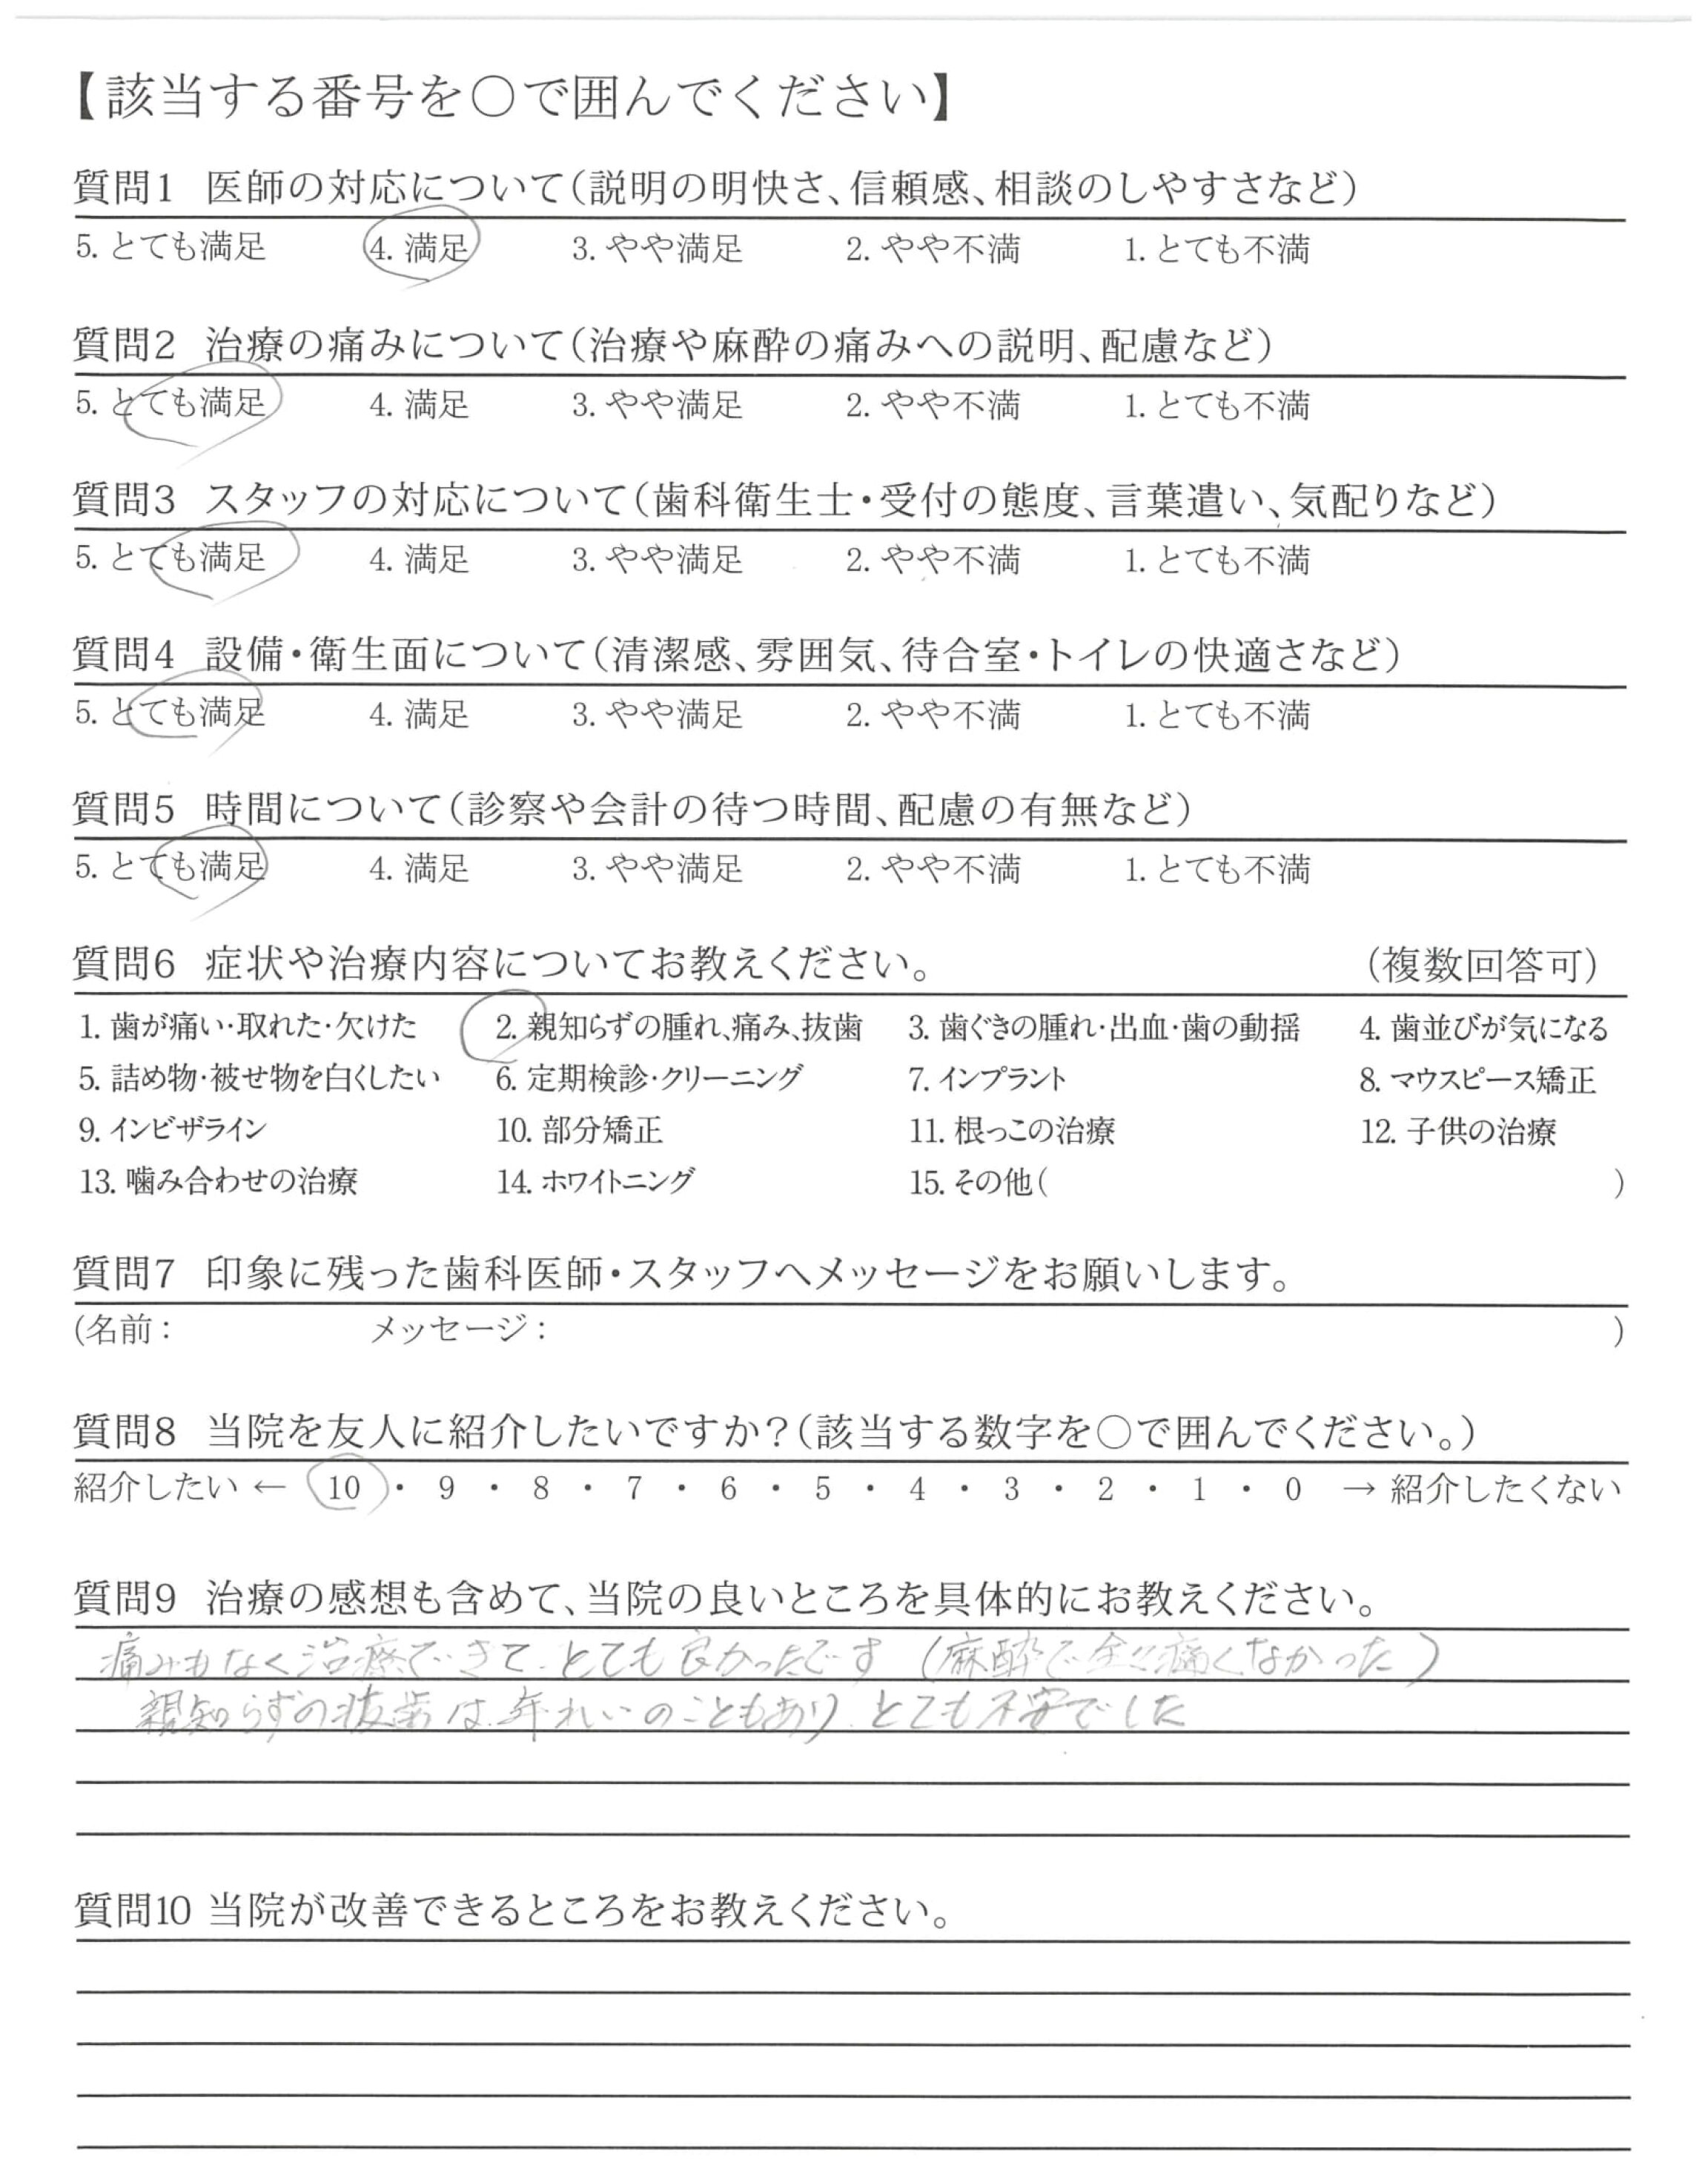 【該当する番号を○で囲んでください】
質問1 医師の対応について(説明の明快さ、信頼感、相談のしやすさなど)
5. とても満足 4. 満足 3. やや満足 2. やや不満 1. とても不満
質問2 治療の痛みについて(治療や麻酔の痛みへの説明、配慮など)
5. とても満足 4. 満足 3. やや満足 2. やや不満 1. とても不満
質問3 スタッフの対応について(歯科衛生士・受付の態度、言葉遣い、気配りなど)
5. とても満足 4. 満足 3. やや満足 2. やや不満 1. とても不満
質問4 設備・衛生面について(清潔感、雰囲気、待合室・トイレの快適さなど)
5. とても満足 4. 満足 3. やや満足 2. やや不満 1. とても不満
質問5 時間について(診察や会計の待つ時間、配慮の有無など)
5. とても満足 4. 満足 3. やや満足 2. やや不満 1. とても不満
質問6 症状や治療内容についてお教えください。 (複数回答可)
1. 歯が痛い・取れた・欠けた 2. 親知らずの腫れ、痛み、抜歯 3. 歯ぐきの腫れ・出血・歯の動揺 4. 歯並びが気になる
5. 詰め物・被せ物を白くしたい 6. 定期検診・クリーニング 7. インプラント 8. マウスピース矯正
9. インビザライン 10. 部分矯正 11. 根っこの治療 12. 子供の治療
13. 噛み合わせの治療 14. ホワイトニング 15. その他( )
質問7 印象に残った歯科医師・スタッフへメッセージをお願いします。
(名前： メッセージ： )
質問8 当院を友人に紹介したいですか?(該当する数字を○で囲んでください。)
紹介したい ← 10 ・ 9 ・ 8 ・ 7 ・ 6 ・ 5 ・ 4 ・ 3 ・ 2 ・ 1 ・ 0 → 紹介したくない
質問9 治療の感想も含めて、当院の良いところを具体的にお教えください。
痛みもなく治療できて、とても良かったです (麻酔で全々痛くなかった)
親知らずの抜歯は、年れいのこともあり、とても不安でした
質問10 当院が改善できるところをお教えください。